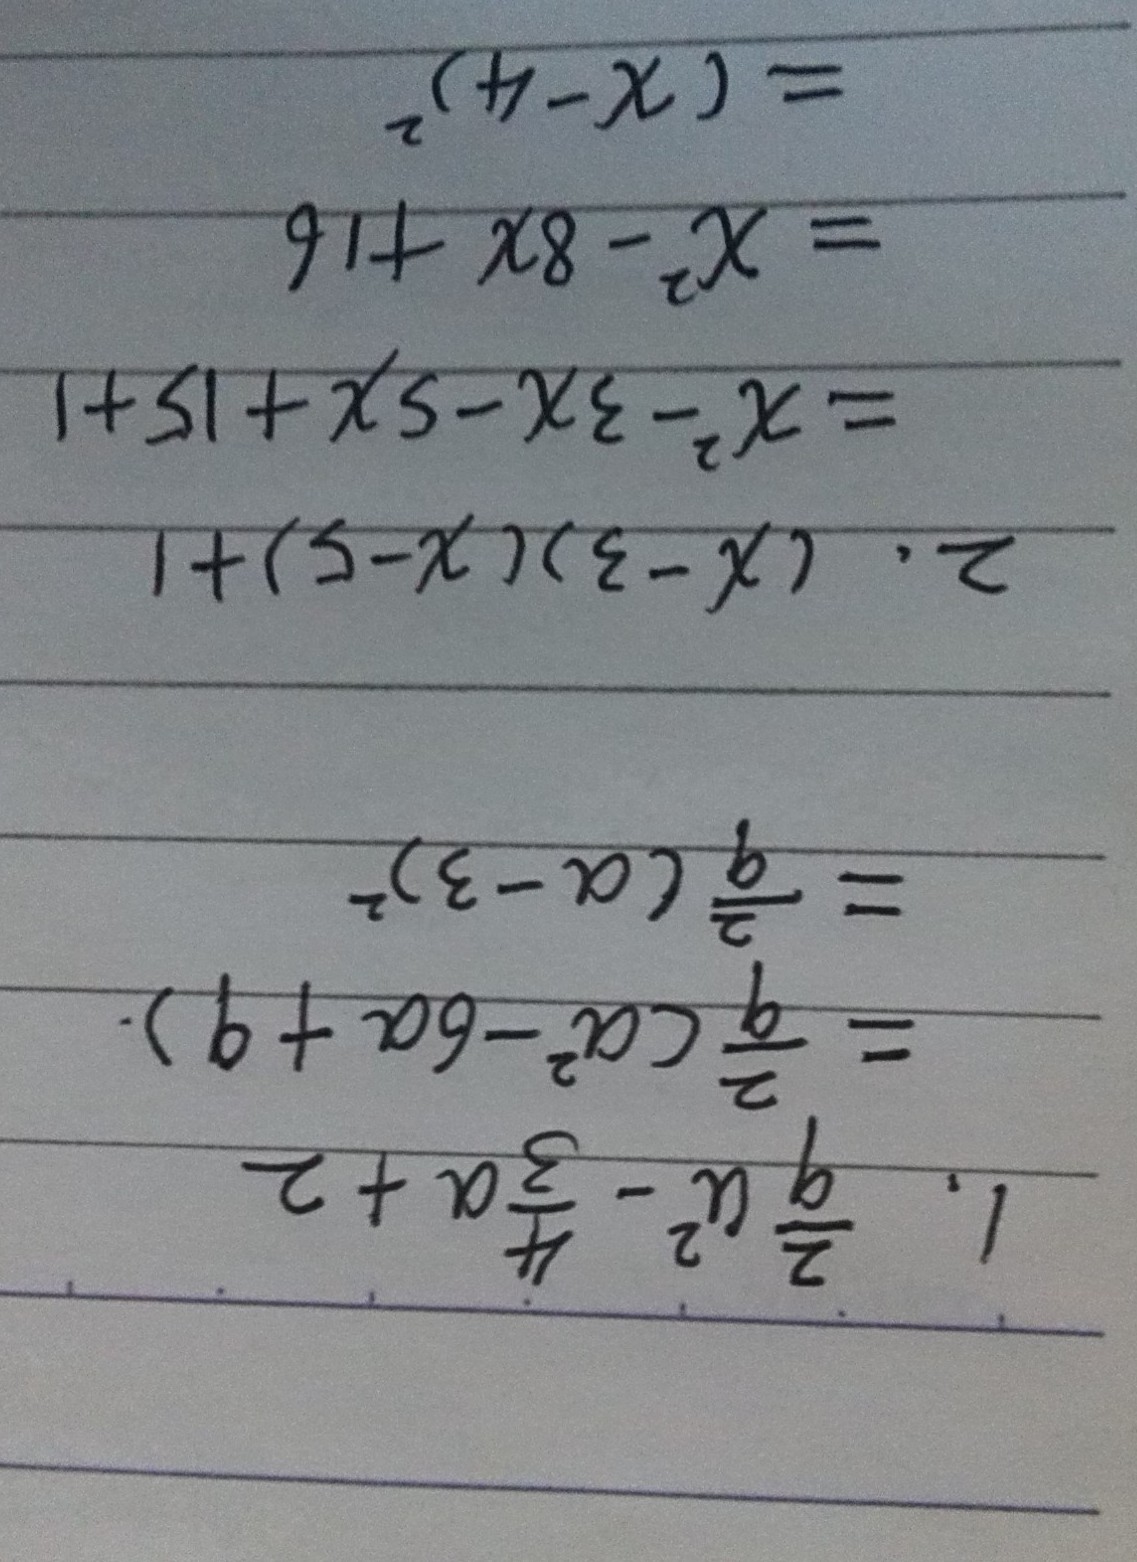 1. 2/9 a² - 4/3 a + 2
= 2/9 (a² - 6a + 9).
= 2/9 (a - 3)²
2. (x - 3)(x - 5) + 1
= x² - 3x - 5x + 15 + 1
= x² - 8x + 16
= (x - 4)²